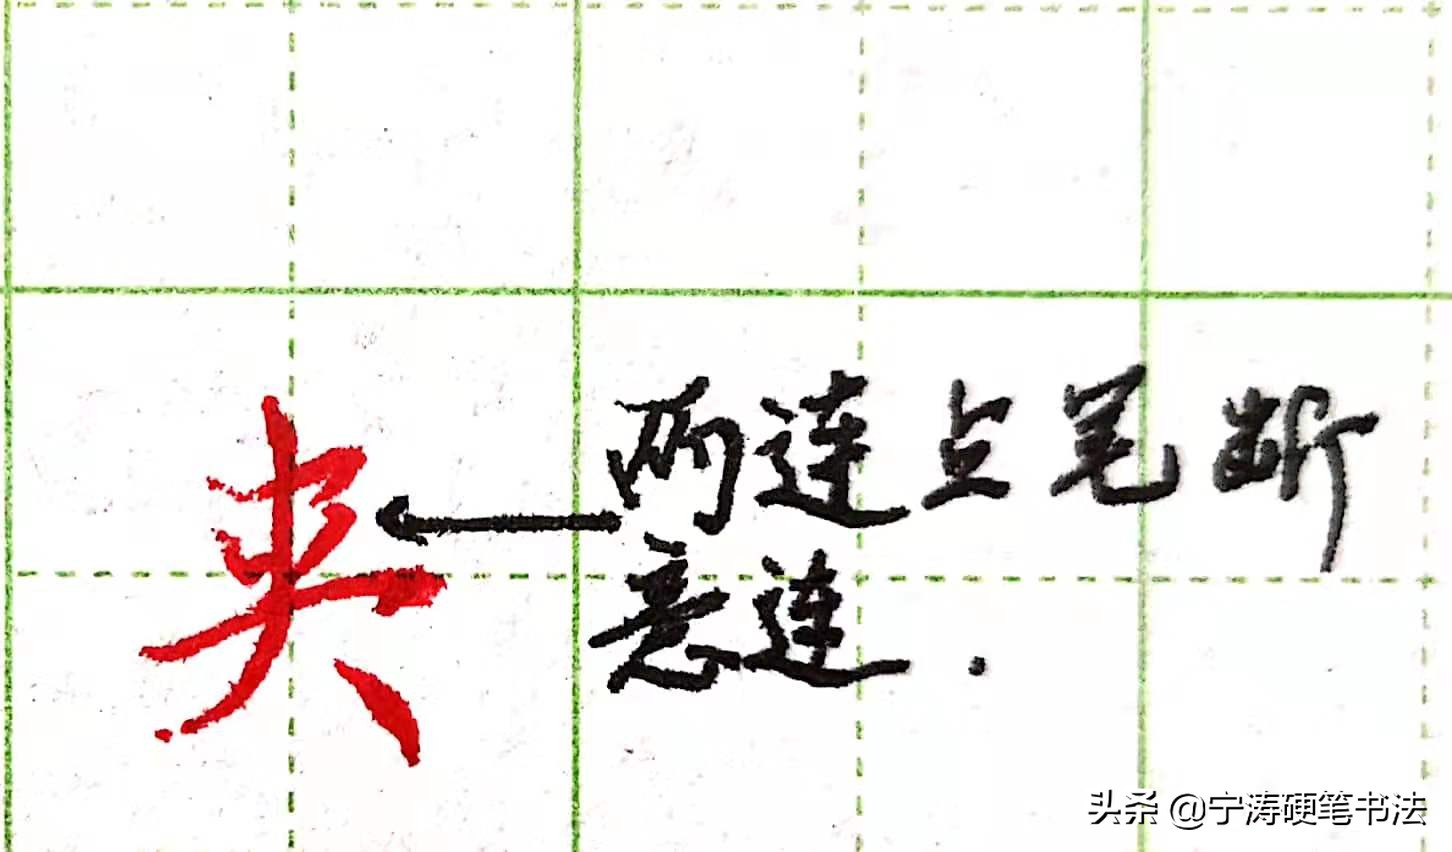 夹
两连点笔断
意连.
头条 @宁涛硬笔书法